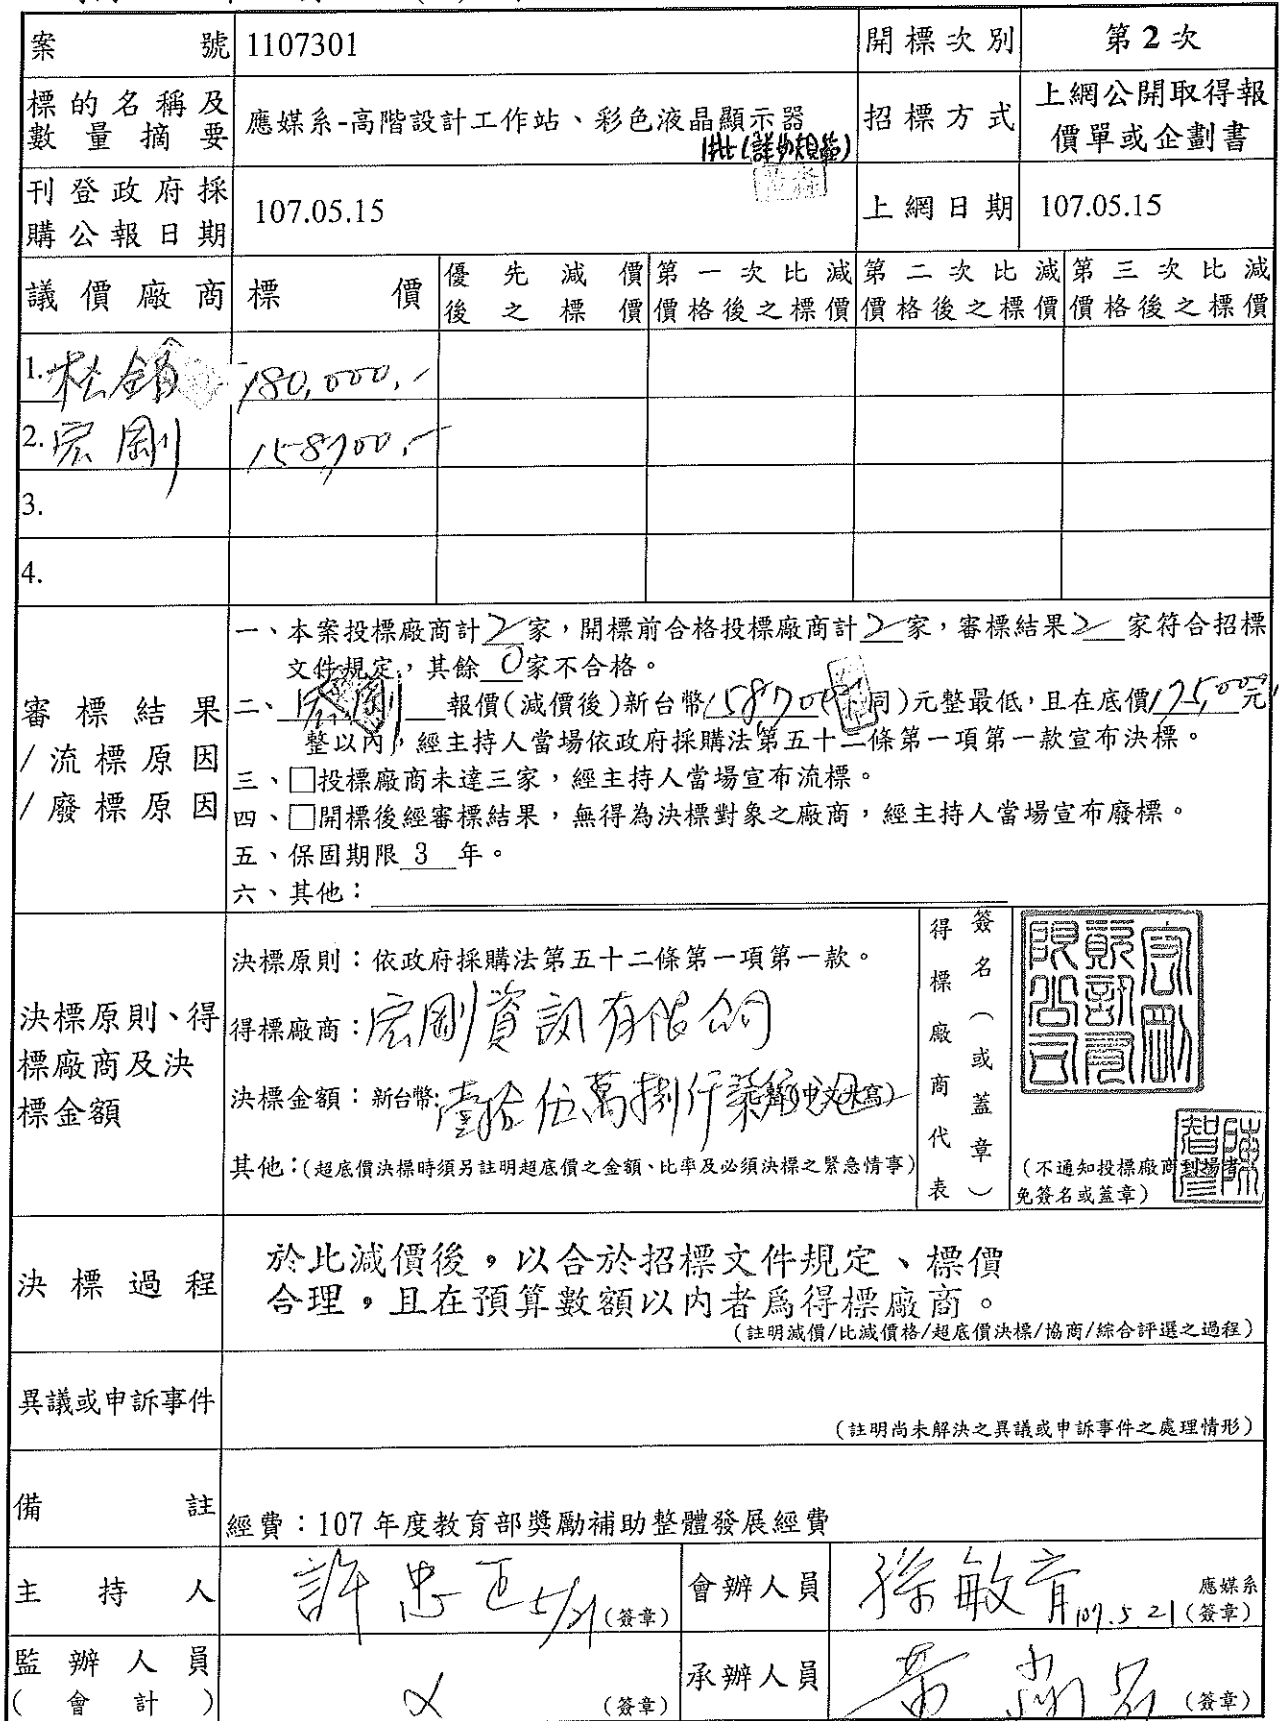 案號 1107301 開標次別 第2次
標的名稱及數量摘要 應媒系-高階設計工作站、彩色液晶顯示器 招標方式 上網公開取得報價單或企劃書
1批(詳如規範)
刊登政府採購公報日期 107.05.15 上網日期 107.05.15
議價廠商 標價 優先減價後之標價 第一次比減價格後之標價 第二次比減價格後之標價 第三次比減價格後之標價
1. 180,000.-
2. 宏剛 158,700.-
3.
4.
審標結果/流標原因/廢標原因
一、本案投標廠商計2家，開標前合格投標廠商計2家，審標結果2家符合招標
文件規定，其餘0家不合格。
二、宏剛 報價(減價後)新台幣158,700(同)元整最低，且在底價175,000元
整以內，經主持人當場依政府採購法第五十二條第一項第一款宣布決標。
三、□投標廠商未達三家，經主持人當場宣布流標。
四、□開標後經審標結果，無得為決標對象之廠商，經主持人當場宣布廢標。
五、保固期限 3 年。
六、其他：
決標原則、得標廠商及決標金額
決標原則：依政府採購法第五十二條第一項第一款。
得標廠商：宏剛資訊有限公司
決標金額：新台幣：壹拾伍萬捌仟柒佰元(中文大寫)
其他：(超底價決標時須另註明超底價之金額、比率及必須決標之緊急情事)
得標廠商代表
簽名(或蓋章)
宏剛資訊有限公司
陳智彥
(不通知投標廠商到場者免簽名或蓋章)
決標過程
於比減價後，以合於招標文件規定、標價
合理，且在預算數額以內者為得標廠商。
(註明減價/比減價格/超底價決標/協商/綜合評選之過程)
異議或申訴事件
(註明尚未解決之異議或申訴事件之處理情形)
備註
經費：107 年度教育部獎勵補助整體發展經費
主持人 許忠正 5/21 (簽章) 會辦人員 徐敏育 107.5.21 應媒系(簽章)
監辦人員(會計) (簽章) 承辦人員 黃 5/21 (簽章)